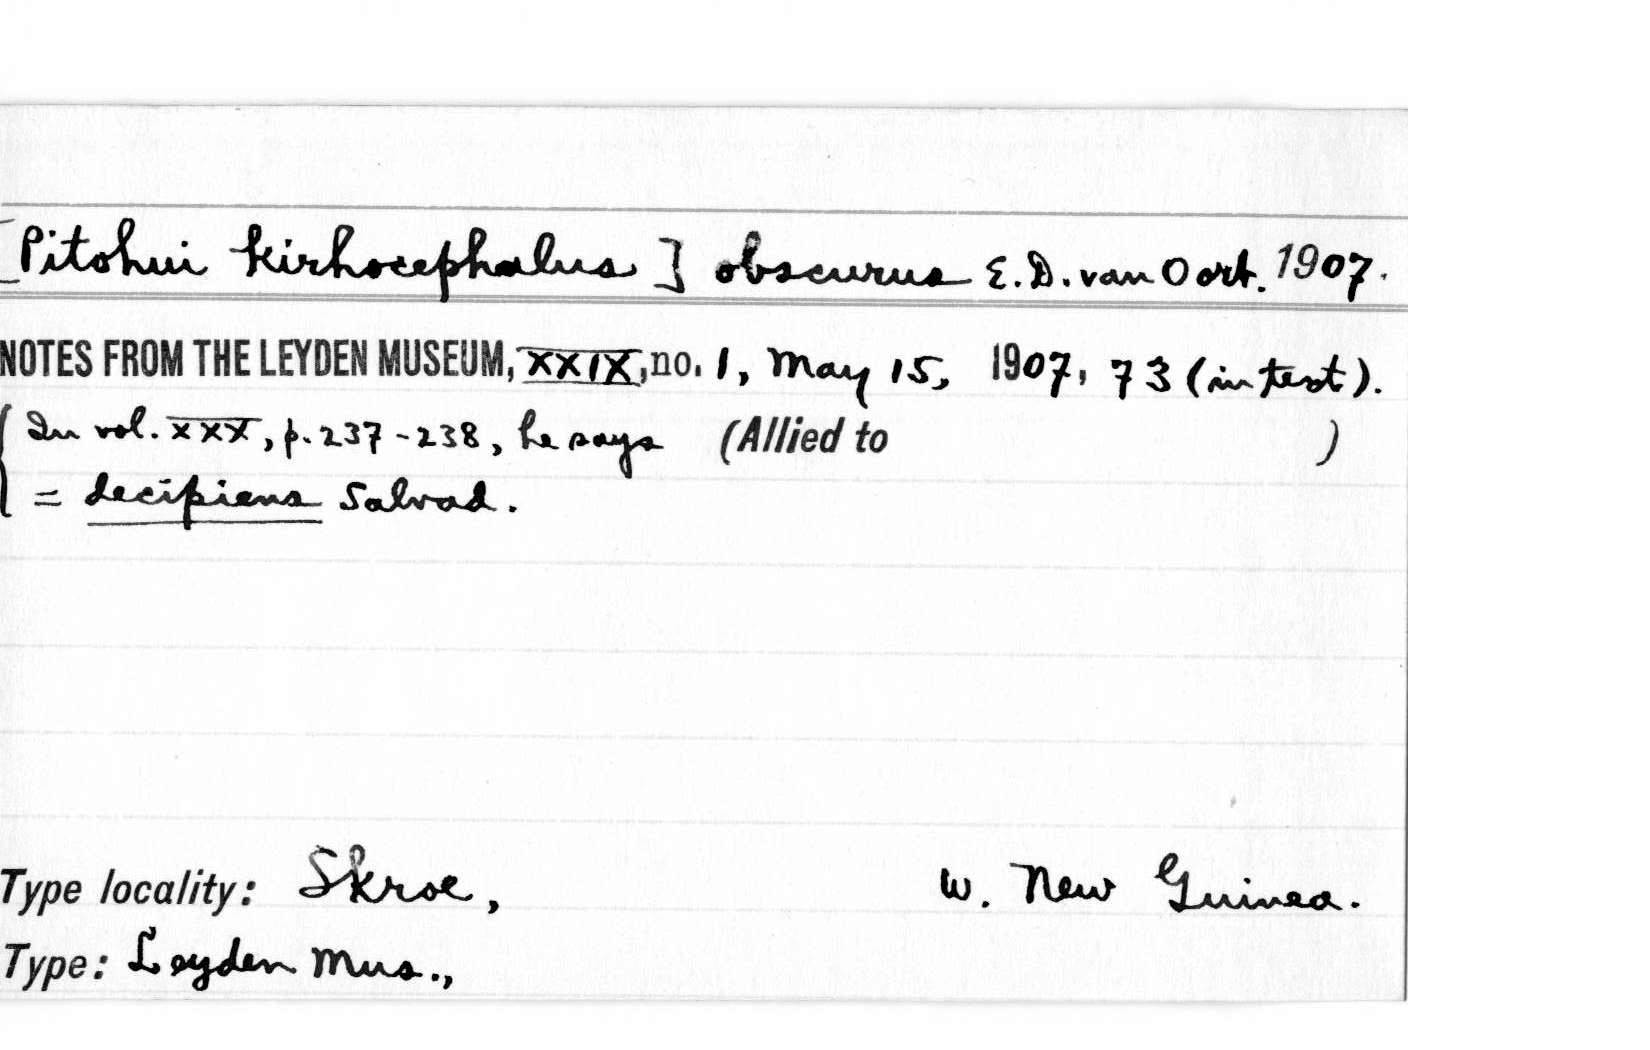 [Pitohui kirhocephalus] obscurus E.D. van Oort. 1907.
NOTES FROM THE LEYDEN MUSEUM, XXIX, no. 1, May 15, 1907, 73 (in text).
{ In vol. XXX, p. 237-238, he says (Allied to )
= decipiens Salvad.
Type locality: Skroe, W. New Guinea.
Type: Leyden Mus.,